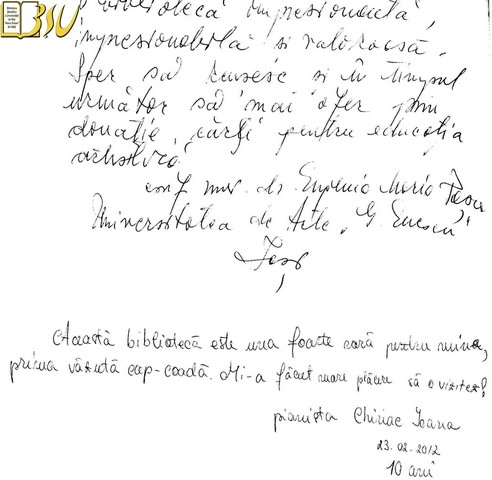 BSU
bibliotecă impresionantă,
impresionabilă si valoroasă.
Sper să reusesc si în timpul
următor să mai ofer prin
donatie, cărti pentru educatia
artistică
conf. univ. dr. Eugenia Maria
Universitatea de Arte „G. Enescu"
Iasi
Această bibliotecă este una foarte rară pentru mine,
prima văzută cap-coadă. Mi-a făcut mare plăcere să o vizitez!
pianista Chiriac Ioana
23.02.2012
10 ani